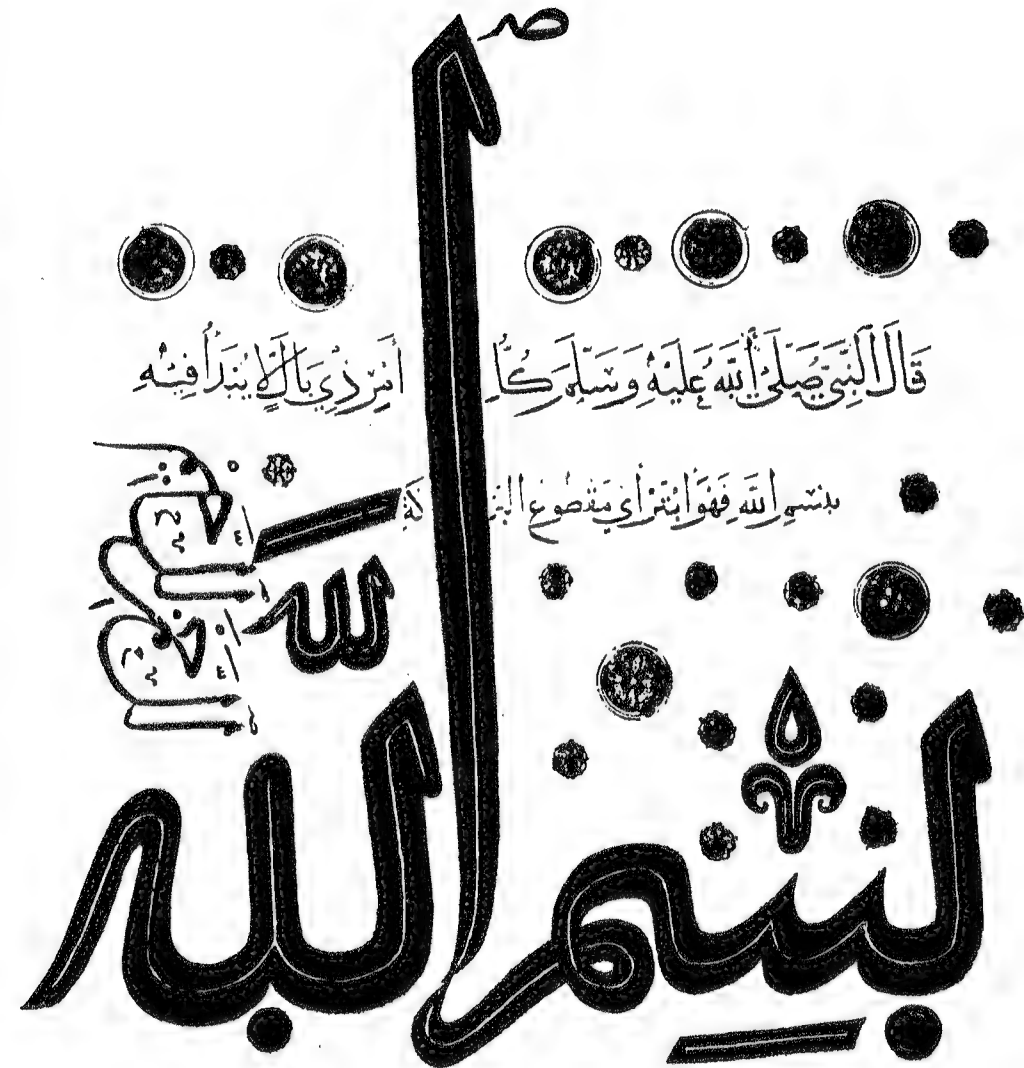 قَالَ النَّبِيُّ صَلَّى اللهُ عَلَيْهِ وَسَلَّمَ كُلُّ أَمْرٍ ذِي بَالٍ لَا يُبْدَأُ فِيْهِ
بِسْمِ اللهِ فَهُوَ أَبْتَرُ أَيْ مَقْطُوعُ البَرَكَةِ
بِسْمِ اللهِ